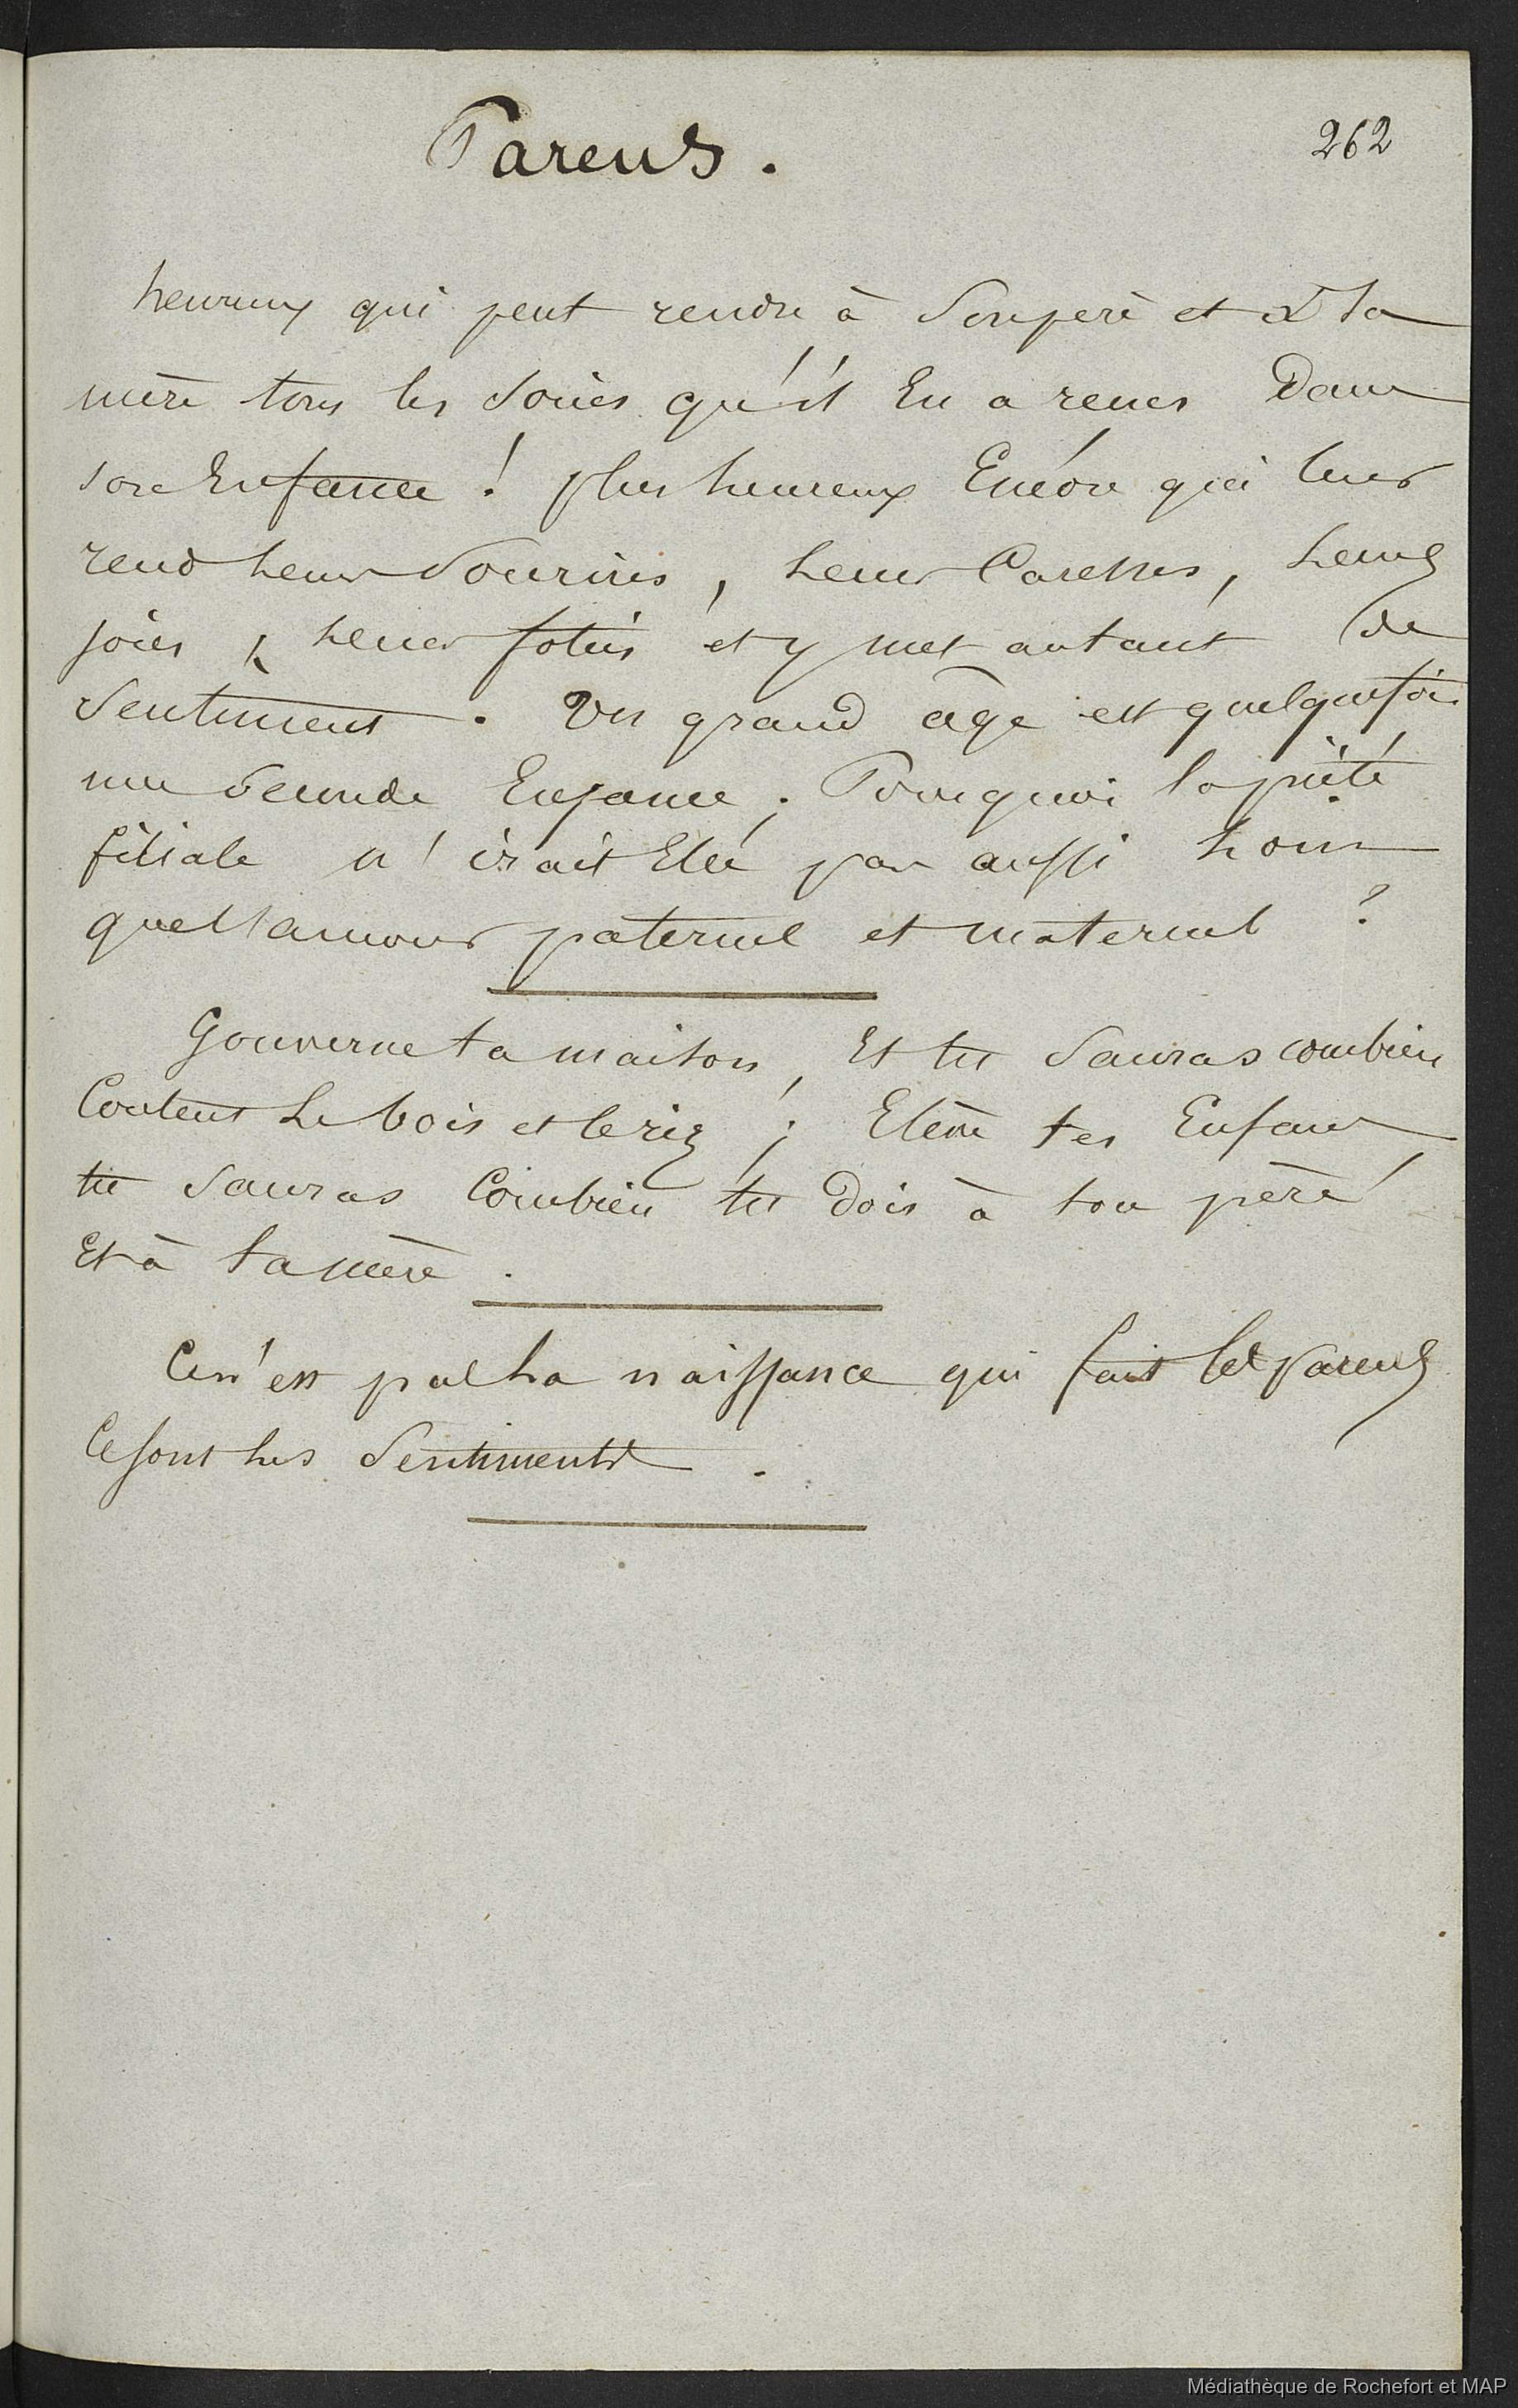 Parens.
262
heureux qui peut rendre à son père et à sa
mère tous les soins qu'il En a reçus Dans
son Enfance ! plus heureux Encore qui leur
rend leurs Sourires, leurs Caresses, leurs
joies, leurs folies et y met autant de
Sentiment. Un grand âge est quelquefois
une seconde Enfance ; Pourquoi la piété
filiale n'irait Elle pas aussi loin
que l'amour paternel et maternel ?
Gouverne ta maison, Et tu Sauras combien
Coutent le bois et le riz ; Elève tes Enfans,
tu sauras Combien tu Dois à ton père
Et à ta mère.
Ce n'est pas la naissance qui fait les parens,
Ce sont les Sentiments.
Médiathèque de Rochefort et MAP